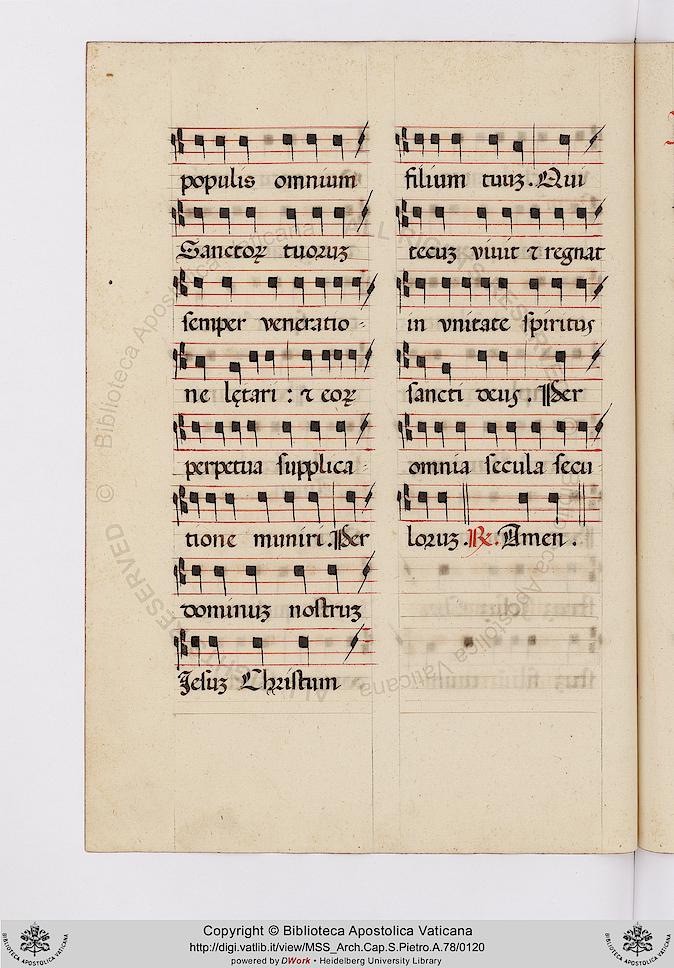 populis omnium
Sanctoꝝ tuoruꝫ
semper veneratio-
ne lętari : ⁊ eoꝝ
perpetua supplica-
tione muniri. Per
dominuꝫ nostruꝫ
Jesuꝫ Christum
filium tuuꝫ. Qui
tecuꝫ viuit ⁊ regnat
in vnitate spiritus
sancti deus. Per
omnia secula secu
loruꝫ. ℟. Amen.
© Biblioteca Apostolica Vaticana ALL RIGHTS RESERVED
Copyright © Biblioteca Apostolica Vaticana
http://digi.vatlib.it/view/MSS_Arch.Cap.S.Pietro.A.78/0120
powered by DWork • Heidelberg University Library
BIBLIOTECA APOSTOLICA VATICANA
BIBLIOTECA APOSTOLICA VATICANA